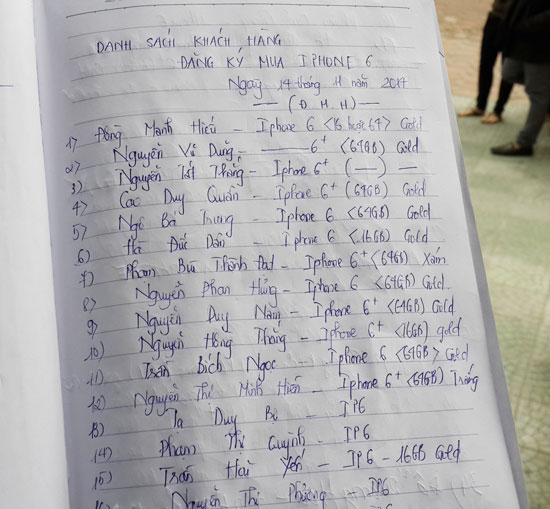 DANH SÁCH KHÁCH HÀNG
ĐĂNG KÝ MUA IPHONE 6
Ngày 14 tháng 11 năm 2014
— (Đ.H.H) —
1) Đồng Mạnh Hiếu - Iphone 6 <16 hoặc 64> Gold
2) Nguyễn Vũ Dũng - ——— 6+ <64GB) Gold
3) Nguyễn Tất Thắng - Iphone 6+ (—) —
4) Cao Duy Quân - Iphone 6+ (64GB) Gold
5) Ngô Bá Trung - Iphone 6 <64GB) Gold
6) Hà Đức Dân - Iphone 6 <16GB) Gold
7) Phan Bùi Thành Đạt - Iphone 6+ <64GB) Xám
8) Nguyễn Phan Hùng - Iphone 6 <64GB) Gold
9) Nguyễn Duy Nam - Iphone 6+ <64GB) Gold
10) Nguyễn Hồng Thắng - Iphone 6+ <16GB) gold
11) Trần Bích Ngọc - Iphone 6 <64GB> Gold
12) Nguyễn Thị Minh Hiền - Iphone 6+ <64GB) Trắng
13) Tạ Duy - IP6
14) Phan Thị Quỳnh - IP6
15) Trần Hải Yến - IP6 - 16GB Gold
Nguyễn Thị Phương - IP6